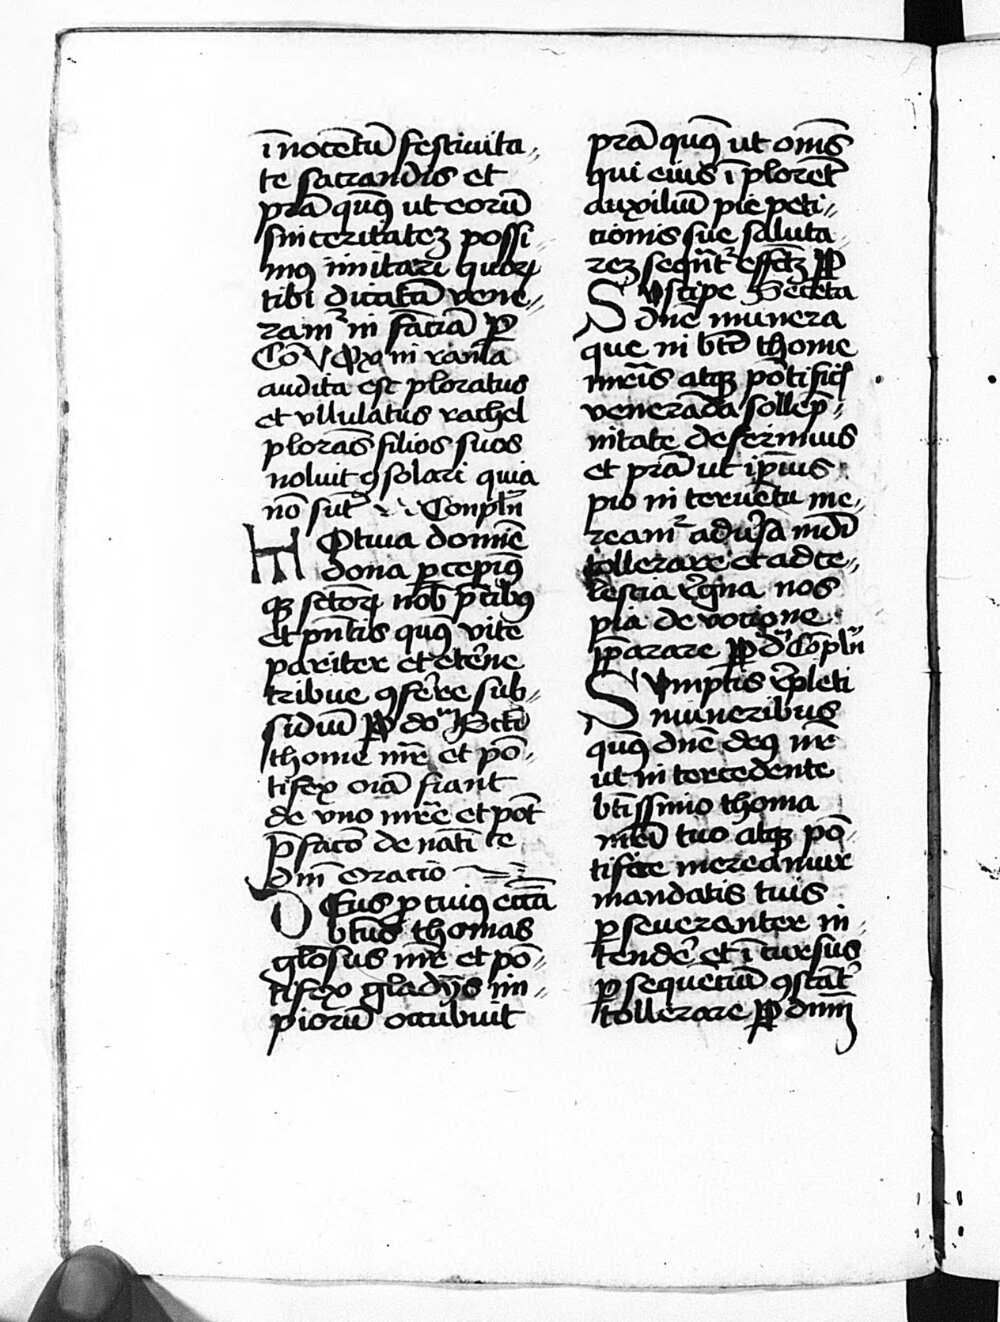 īnocētū festiuita⸗
te sacrandis et
pr̄a quꝫ ut eorū
sinceritateꝫ possi⸗
mꝰ imitari quoꝝ
tibi dicatā vene⸗
ramᷣ infāciā ꝑ
Cō Vox in rama
audita est ploratus
et vllulatus rachel
plorās filios suos
noluit ꝯsolari quia
nō sūt Conpl̄n
Uotiua domīe
dona ꝑcepimꝰ
qꝫ sctōꝝ nob̄ p̄cibꝰ
et pn̄tis quꝫ vite
pariter et etᷣne
tribue ꝯferre sub⸗
sidiū ꝑ dom̄ Sctī
thome mr̄e et pō⸗
tifex oīa fiant
de vno mr̄e et pōt
p̄faco de nāti te
dm̄ Oracio
DEus ꝓ cuiꝰ ecc̄a
bt̄us thomas
gl̄osus mr̄e et pō⸗
tifex gladijs im⸗
piorū occubuit
pr̄a quꝫ ut om̄s
qui eius īplorēt
auxiliū pie peti⸗
tionis sue saluta
reꝫ sequātᷣ effc̄tꝫ ꝑ
SVscipe Secreta
dn̄e munera
que in bt̄i thome
mr̄is atqꝫ pōtificꝭ
venerāda sollep̄⸗
nitate deferimus
et pr̄a ut ip̄ius
pio interuētu me⸗
reamᷣ aduersa mūdi
tollerare et ad ce⸗
lestia regna nos
pia deuocione
p̄parare ꝑ d Cōpl̄n
SVmptis rep̄leti
muneribus
quꝫ dn̄e deꝰ nr̄e
ut intercedente
bt̄issimo thoma
mr̄e tuo atqꝫ pō
tifice mereamur
mandatis tuis
ꝑseueranter in⸗
tendere et īcursus
ꝑsequētiū ꝯstātᷣ
tollerare ꝑ dn̄m